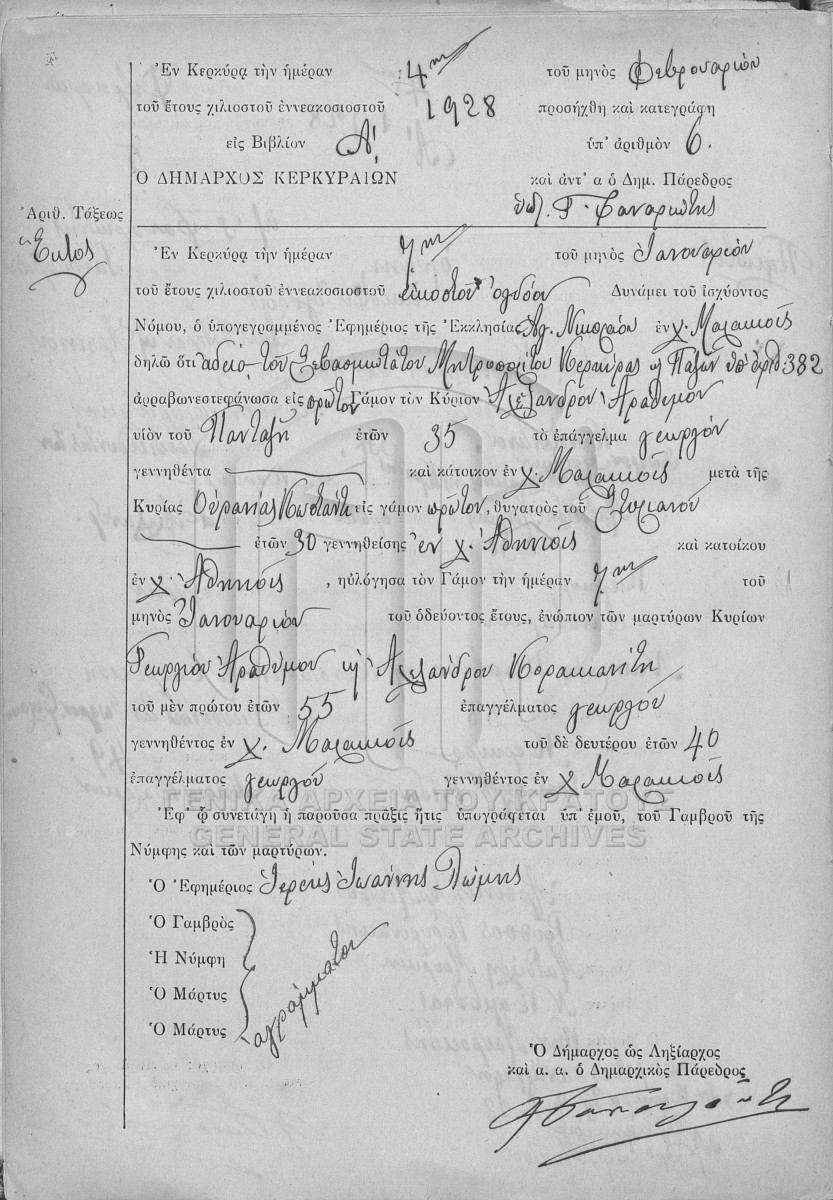 Ἐν Κερκύρᾳ τὴν ἡμέραν 4ην τοῦ μηνὸς Φεβρουαρίου
τοῦ ἔτους χιλιοστοῦ ἐννεακοσιοστοῦ 1928 προσήχθη καὶ κατεγράφη
εἰς Βιβλίον Α! ὑπ' ἀριθμὸν 6.
Ο ΔΗΜΑΡΧΟΣ ΚΕΡΚΥΡΑΙΩΝ καὶ ἀντ' α ὁ Δημ. Πάρεδρος
Γ. Φαναριώτης
Ἀριθ. Τάξεως
Ἕκτος
Ἐν Κερκύρᾳ τὴν ἡμέραν 7ην τοῦ μηνὸς Ἰανουαρίου
τοῦ ἔτους χιλιοστοῦ ἐννεακοσιοστοῦ εἰκοστοῦ ὀγδόου Δυνάμει τοῦ ἰσχύοντος
Νόμου, ὁ ὑπογεγραμμένος Ἐφημέριος τῆς Ἐκκλησίας Αγ. Νικολάου ἐν χ. Μαλακιοῖς
δηλῶ ὅτι ἀδείᾳ τοῦ Σεβασμιωτάτου Μητροπολίτου Κερκύρας ϗ Παξῶν ὑπ' ἀριθ. 382
ἀρραβωνεστεφάνωσα εἰς πρῶτον Γάμον τὸν Κύριον Ἀλέξανδρον Ἀράθυμον
υἱὸν τοῦ Πανταζῆ ἐτῶν 35 τὸ ἐπάγγελμα γεωργὸν
γεννηθέντα καὶ κάτοικον ἐν χ. Μαλακιοῖς μετὰ τῆς
Κυρίας Οὐρανίας Κωστάντη εἰς γάμον πρῶτον, θυγατρὸς τοῦ Στυλιανοῦ
ἐτῶν 30 γεννηθείσης ἐν χ. Ἀθηνιοῖς καὶ κατοίκου
ἐν χ. Ἀθηνιοῖς, ηὐλόγησα τὸν Γάμον τὴν ἡμέραν 7ην τοῦ
μηνὸς Ἰανουαρίου τοῦ ὁδεύοντος ἔτους, ἐνώπιον τῶν μαρτύρων Κυρίων
Γεωργίου Ἀραθύμου ϗ Ἀλεξάνδρου Κορακιανίτη
τοῦ μὲν πρώτου ἐτῶν 55 ἐπαγγέλματος γεωργοῦ
γεννηθέντος ἐν χ. Μαλακιοῖς τοῦ δὲ δευτέρου ἐτῶν 40
ἐπαγγέλματος γεωργοῦ γεννηθέντος ἐν χ. Μαλακιοῖς
ΓΕΝΙΚΑ ΑΡΧΕΙΑ ΤΟΥ ΚΡΑΤΟΥΣ
Ἐφ' ᾧ συνετάγη ἡ παροῦσα πρᾶξις ἥτις ὑπογράφεται ὑπ' ἐμοῦ, τοῦ Γαμβροῦ τῆς
GENERAL STATE ARCHIVES
Νύμφης καὶ τῶν μαρτύρων.
Ὁ Ἐφημέριος Ἱερεὺς Ἰωάννης
Ὁ Γαμβρὸς
Ἡ Νύμφη
Ὁ Μάρτυς
Ὁ Μάρτυς
ἀγράμματοι
Ὁ Δήμαρχος ὡς Ληξίαρχος
καὶ α. α. ὁ Δημαρχικὸς Πάρεδρος